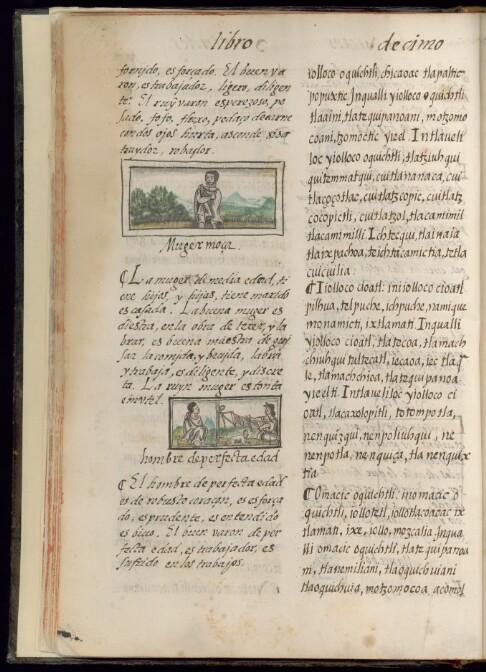 libro
decimo
fornido, es forçado. El buen va
ron, es trabajador, ligero, diligen
te. El ruin varon es pereçoso, pe
sado, fofo, pedaço de carne
con dos ojos
truydor, robador.
Muger moça.
¶ La muger de media edad, ti
ene hijos, y hijas, tiene marido
es casada. La buena muger es
diestra, en la obra de texer, y la
brar, es buena maestra de gui
sar la comida, y beuida, labra
y trabaja, es diligente, y discre
ta. La ruyn muger es tonta
e inutil.
hombre de perfecta edad
¶ El hombre de perfecta edad
es de robusto coraçon, es esforça
do, es prudente, es entendido
es biuo. El buen varon de per
fecta edad, es trabajador, es
sufrido en los trabajos.
iolloco oquichtli, chicaoac tlapaltic
popuxtic Inqualli yiolloco oquichtli
tlaani, tlatzquipanoani, motzomo
coani, tzomoctic yiel. Intlaueli
loc iyolloco oquichtli, tlatziuhqui
quitzmmatqui, cuitlananaca, cui
tlaçoçotlac, cuitlatzcopic, cuitlatz
cocopictli, cuitlatzol, tlacamimil
tlacamimilli Ichtecqui, tlainaia
tlaixpachoa, teichtacamictia, tetla
cuicuilia
¶ Iolloco cioatl: in iiolloco cioatl
pilhua, telpuche, ichpuche, namique
monamicti, ixtlamati. Inqualli
yiolloco cioatl, tlatecoa, tlamach
chiuhqui tultecatl, iecaoa, iec tlaq̃
le, tlamachchioa, tlatequipanoa
yieelti. Intlaueliloc yiolloco ci
oatl, tlacaxolopitli, totompotla,
nenquizqui, nenpoliuhqui, ne
nenpotla, nenquiça, tlanenquix
tia
¶ Omacic oquichtli: inomacic o
quichtli, iollotetl, iollotlacoaoac ix
tlamati, ixe, iollo, mozcalia Inqua
lli omacic oquichtli, tlatequipanoa
ni, tlaiemiliani, tlaoquichuiani
tlaoquichuia, motzomocoa,